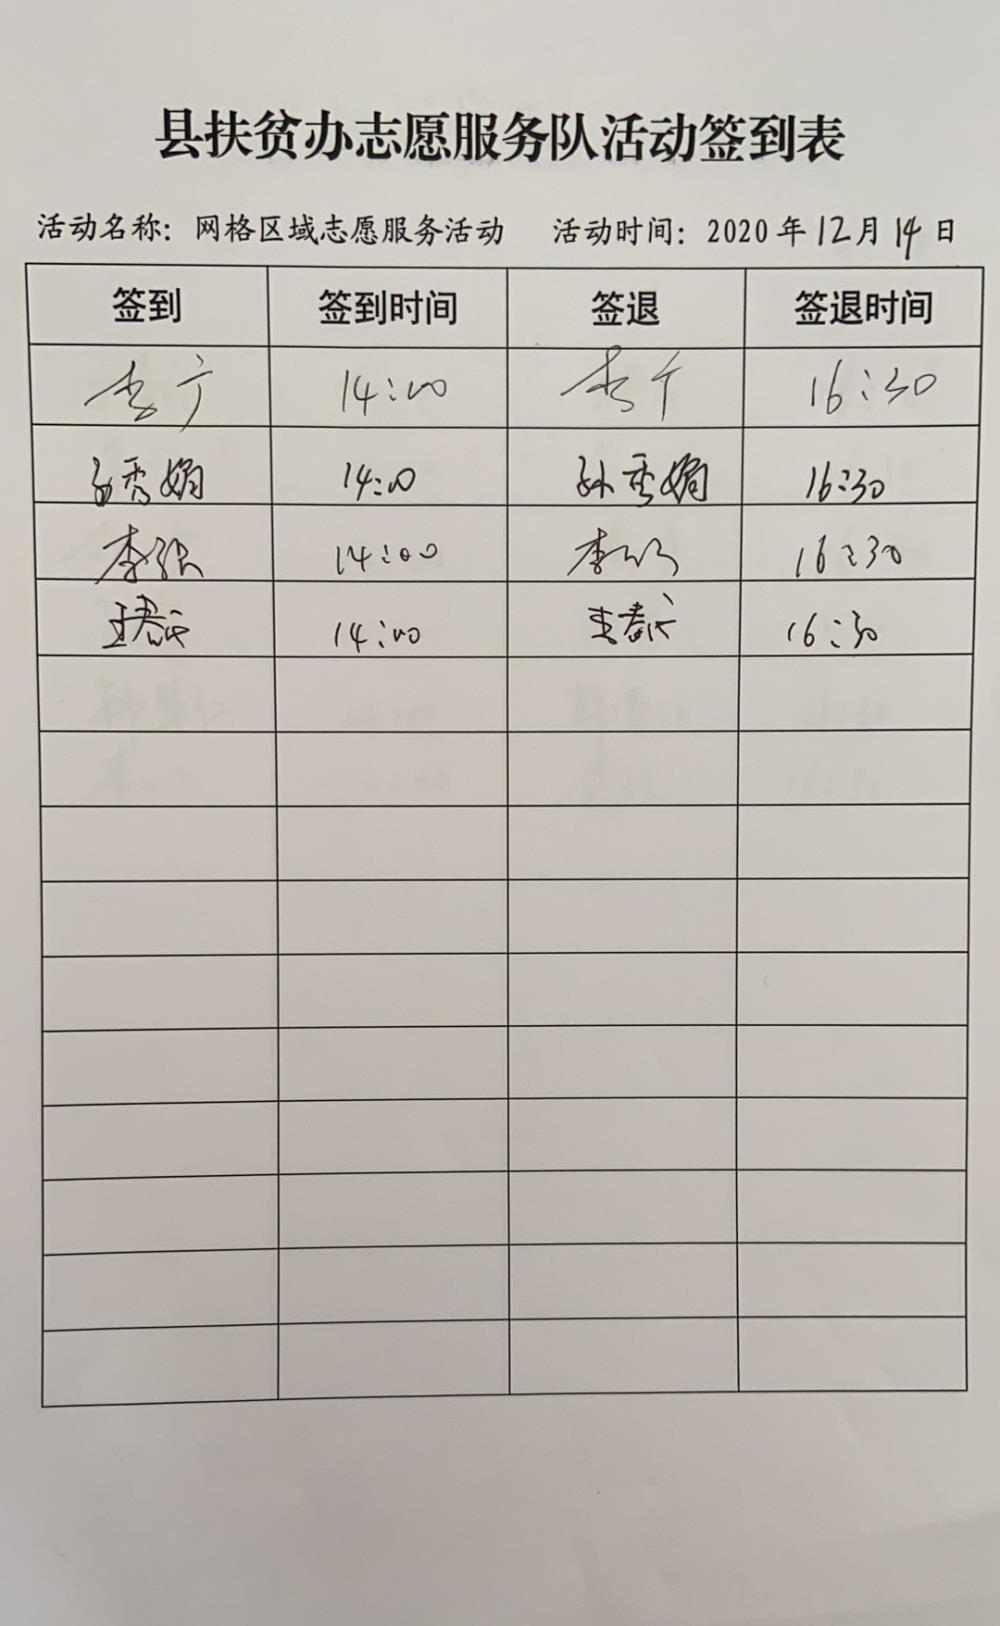 县扶贫办志愿服务队活动签到表
活动名称：网格区域志愿服务活动 活动时间：2020年12月14日
签到 签到时间 签退 签退时间
李 14:00 李 16:30
孙秀娟 14:00 孙秀娟 16:30
李 14:00 李 16:30
王春 14:00 王春 16:30